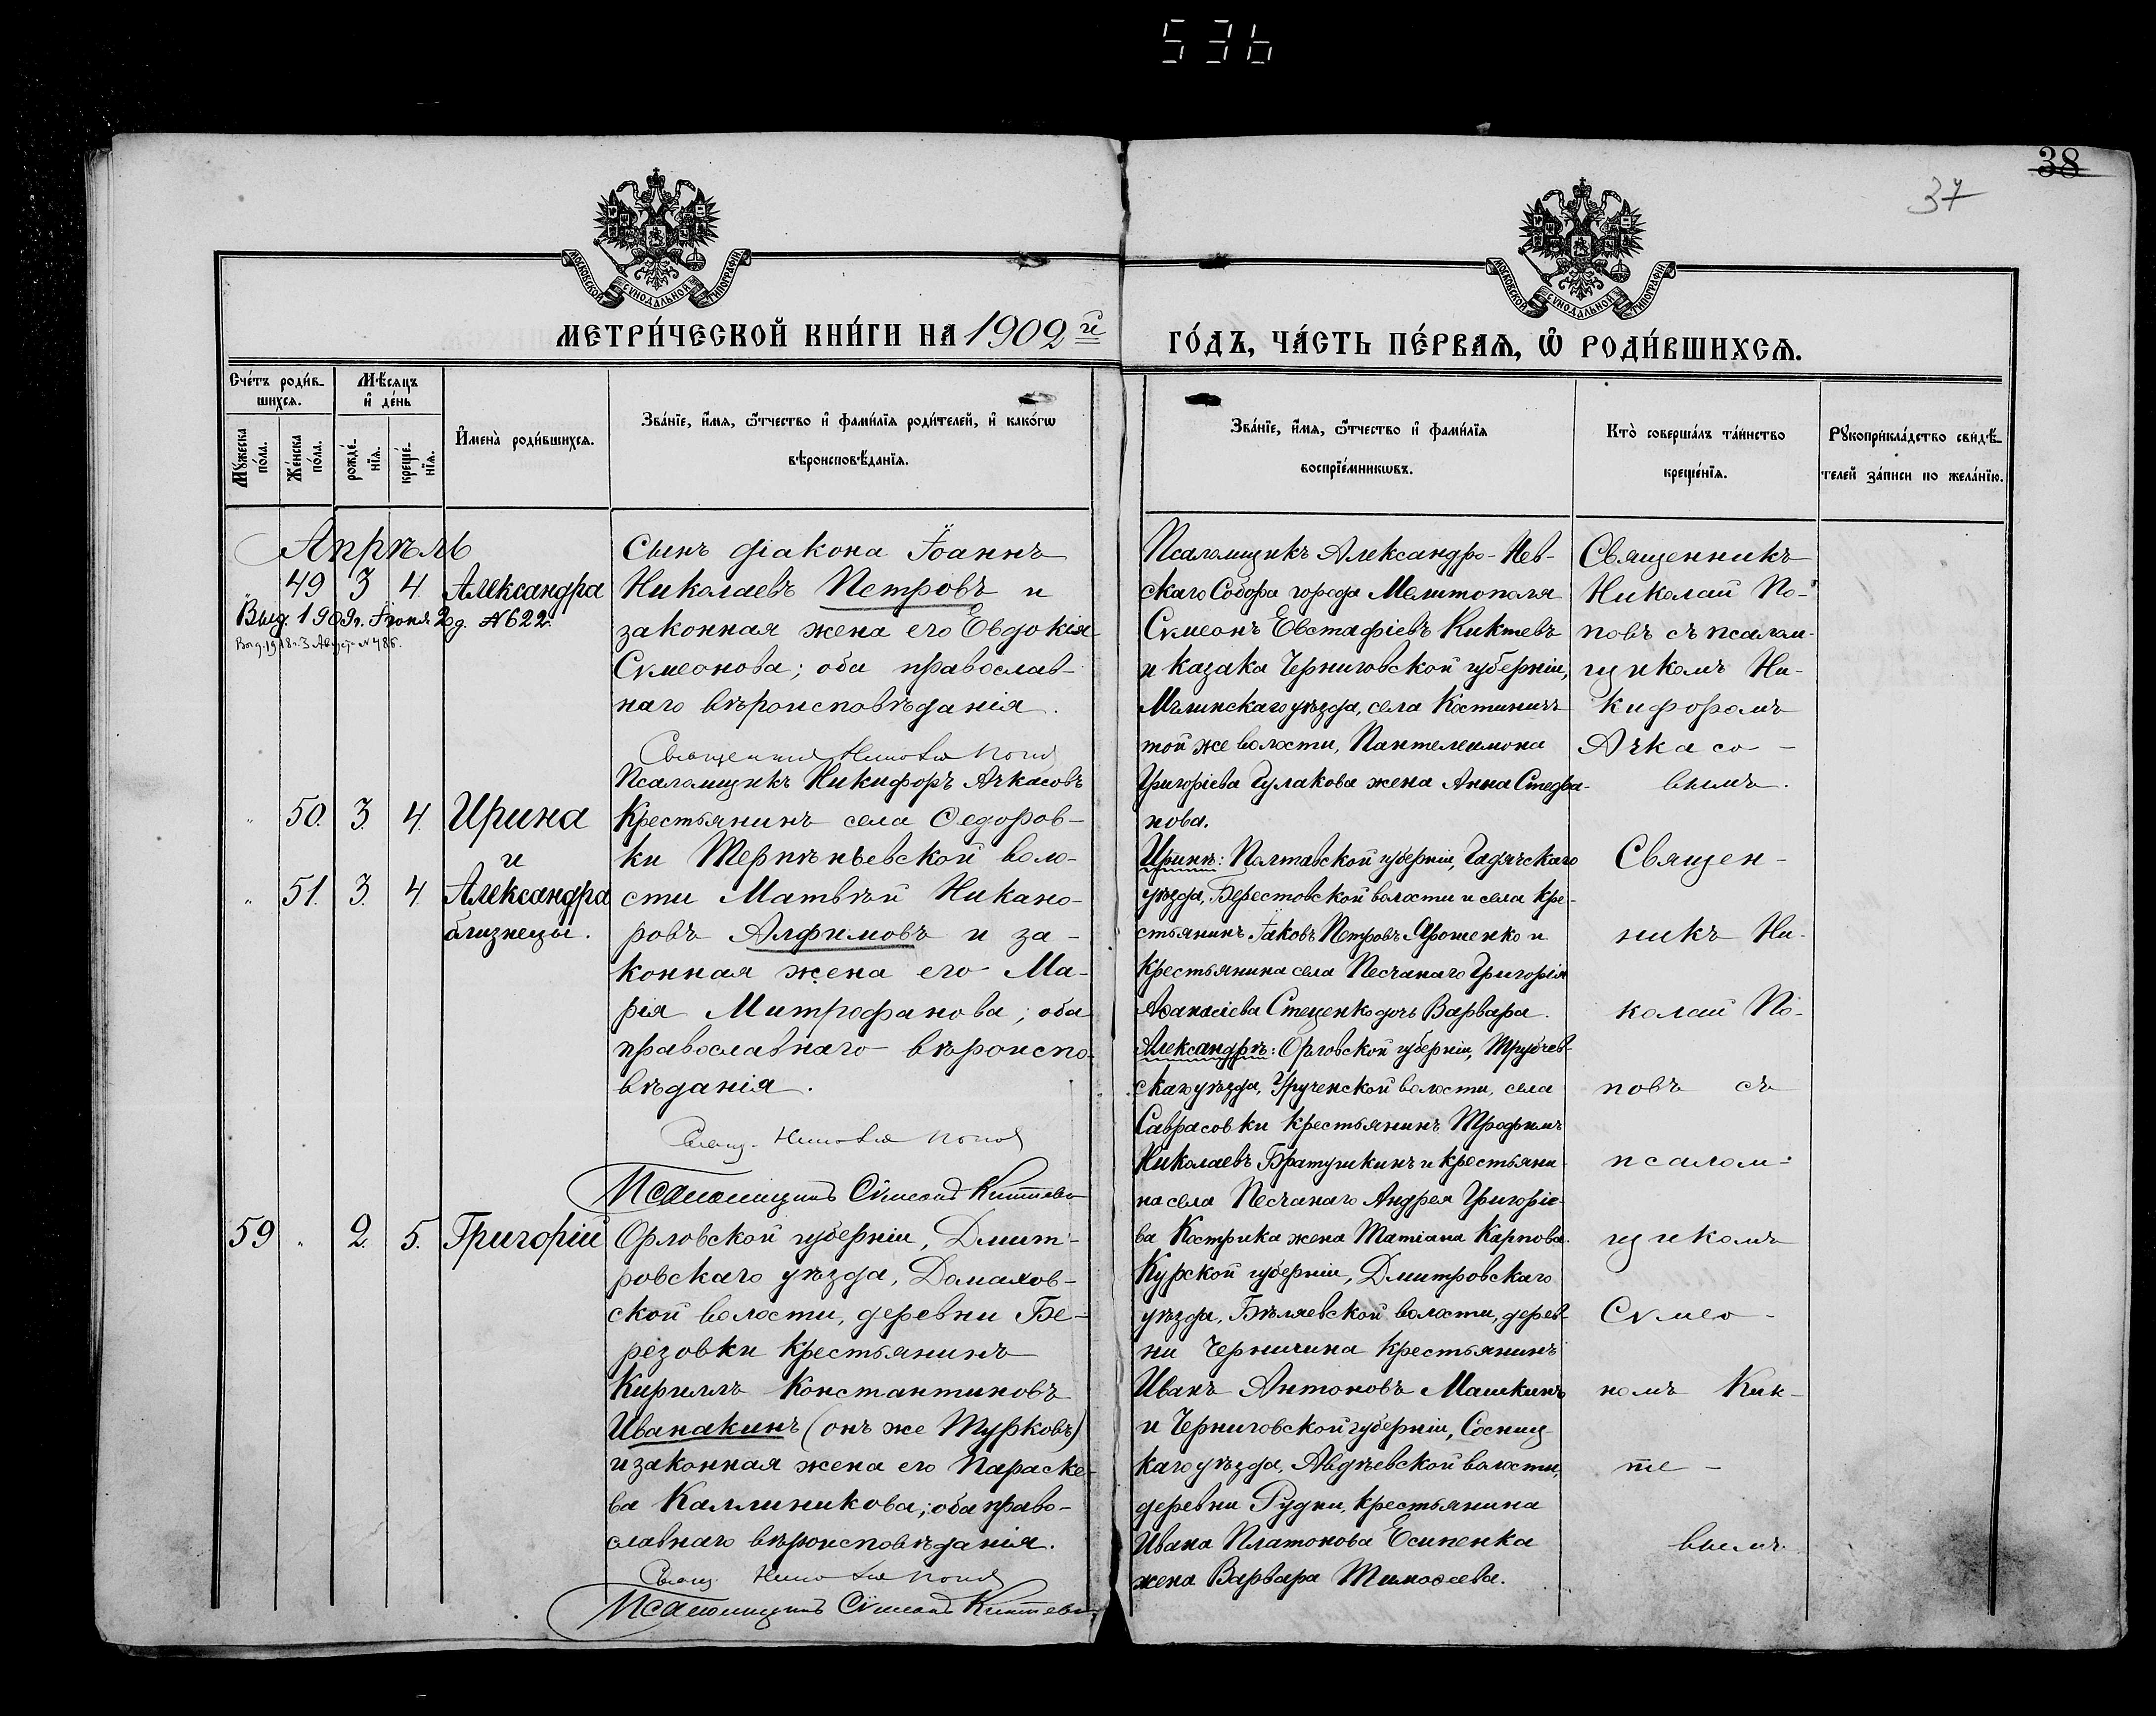 536
38
37
МОСКОВСКОЙ СѴНОДАЛЬНОЙ ТИПОГРАФІИ
МОСКОВСКОЙ СѴНОДАЛЬНОЙ ТИПОГРАФІИ
МЕТРИ́ЧЕСКОЙ КНИ́ГИ НА 1909й
ГО́ДЪ, ЧА́СТЬ ПЕ́РВАѦ, Ѽ РОДИ́ВШИХСѦ.
Сче́тъ роди́в-
шихсѧ.
Мѣ́сѧцъ
и҆ де́нь
Мꙋ́жеска
по́ла.
Же́нска
по́ла.
рожде́-
нїѧ.
креще́-
нїѧ.
И҆мена̀ роди́вшихсѧ.
Зва́нїе, и҆́мѧ, ѻ҆́тчество и҆ фами́лїѧ роди́телей, и҆ како́гѡ
вѣроисповѣ́данїѧ.
Зва́нїе, и҆́мѧ, ѻ҆́тчество и҆ фами́лїѧ
воспрїе́мникѡвъ.
Кто̀ соверша́лъ та́инство
креще́нїѧ.
Рꙋкоприкла́дство свидѣ́-
телей за́писи по жела́нїю.
Апрѣль
49 3 4. Александра
Выд. 1909г. Іюня 2 д. №622.
Выд. 1918г. 3 Август №486.
Сынъ діакона Іоаннъ
Николаевъ Петровъ и
законная жена его Евдокія
Сѵмеонова; оба православ-
наго вѣроисповѣданія.
Священникъ Николай Попов
Псаломщикъ Никифоръ Ачкасовъ
Псаломщикъ Александро-Нев-
скаго Собора города Мелитополя
Сѵмеонъ Евстафіевъ Киктевъ
и казака Черниговской губерніи,
Мглинскаго уѣзда, села Костиничъ
той же волости, Пантелеимона
Григоріева Гулакова жена Анна Стефа-
нова.
Священникъ
Николай По-
повъ съ псалом-
щикомъ Ни-
кифоромъ
Ачкасо-
вымъ.
" 50. 3. 4. Ирина
и
" 51. 3. 4. Александра
близнецы.
Крестьянинъ села Ѳедоров-
ки Терпѣньевской воло-
сти Матвѣй Никано-
ровъ Алфимовъ и за-
конная жена его Ма-
рія Митрофанова; оба
православнаго вѣроиспо-
вѣданія.
Свящ. Николай Попов
Псаломщикъ Сѵмеонъ Киктевъ
Иринѣ: Полтавской губерніи, Гадячскаго
уѣзда, Берестовской волости и села кре-
стьянинъ Іаковъ Петровъ Ярошенко и
крестьянина села Песчанаго Григорія
Аѳанасіева Стеценко дочь Варвара.
Александрѣ: Орловской губерніи, Трубчев-
скаго уѣзда, Урученской волости, села
Саврасовки крестьянинъ Трофимъ
Николаевъ Братушкинъ и крестьяни-
на села Песчанаго Андрея Григоріе-
ва Кострика жена Татіана Карпова.
Священ-
никъ Ни-
колай По-
повъ съ
псалом-
щикомъ
Сѵмео-
номъ Кик-
те-
вымъ
59 " 2. 5. Григорій
Орловской губерніи, Дмит-
ровскаго уѣзда, Домахов-
ской волости, деревни Бе-
резовки крестьянинъ
Кириллъ Константиновъ
Иванакинъ (онъ же Турковъ)
и законная жена его Параске-
ва Каллиникова; оба право-
славнаго вѣроисповѣданія.
Свящ. Николай Попов
Псаломщикъ Сѵмеонъ Киктевъ
Курской губерніи, Дмитровскаго
уѣзда, Бѣляевской волости, дерев-
ни Черничина крестьянинъ
Иванъ Антоновъ Машкинъ
и Черниговской губерніи, Сосниц-
каго уѣзда, Авдѣевской волости,
деревни Рудни, крестьянина
Ивана Платонова Есипенка
жена Варвара Тимоѳеева.